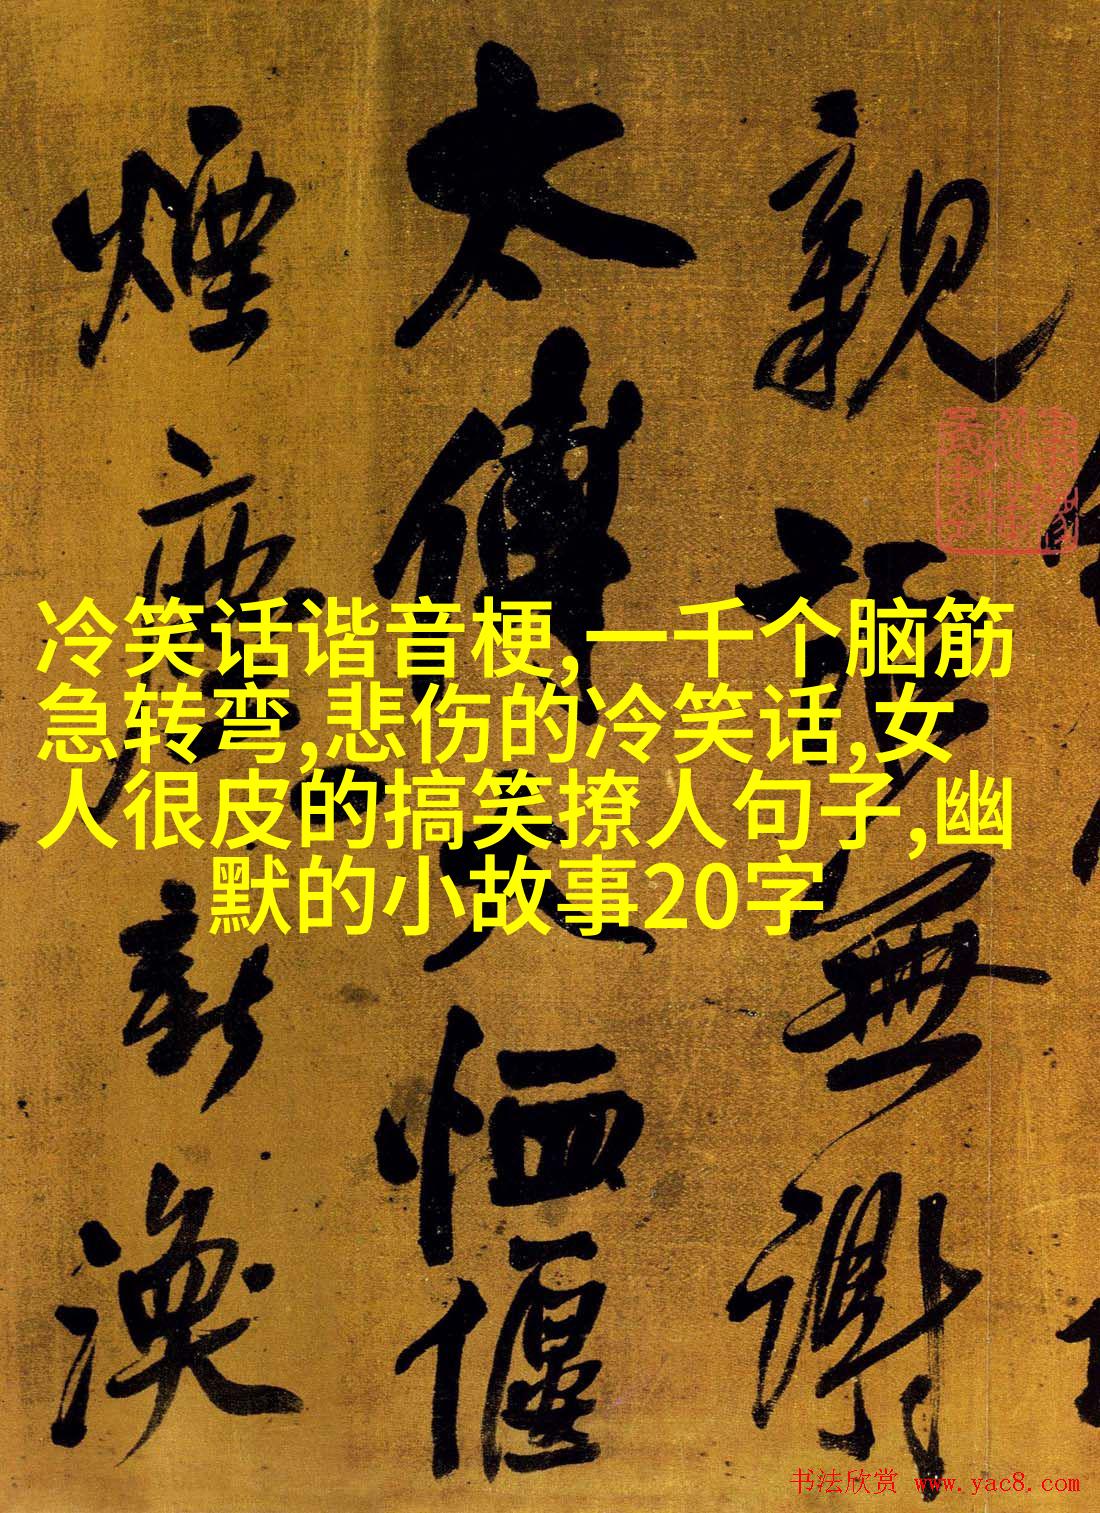 冷笑话谐音梗,一千个脑筋
急转弯,悲伤的冷笑话,女
人很皮的搞笑撩人句子,幽
默的小故事20字
親無謝
太傅恤偃
煙新渙
书法欣赏 www.yac8.com